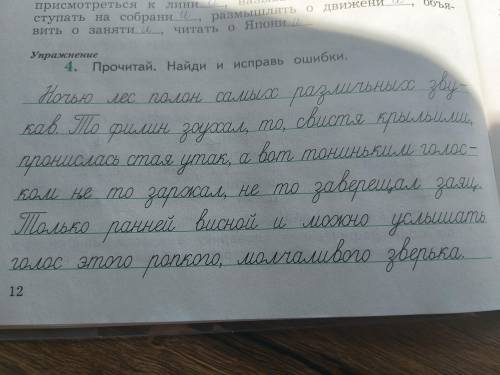 присмотреться к лини и, 
ступать на собрани и, размышлять о движени и, объя-
вить о заняти и, читать о Япони
Упражнение
4. Прочитай. Найди и исправь ошибки.
Ночью лес полон самых различных зву-
кав. То филин зоухал, то, свистя крыльими,
пронислась стая утак, а вот тониньким голос-
ком не то заржал, не то заверещал заяц.
Только ранней висной и можно услышать
голос этого ропкого, молчаливого зверька.
12